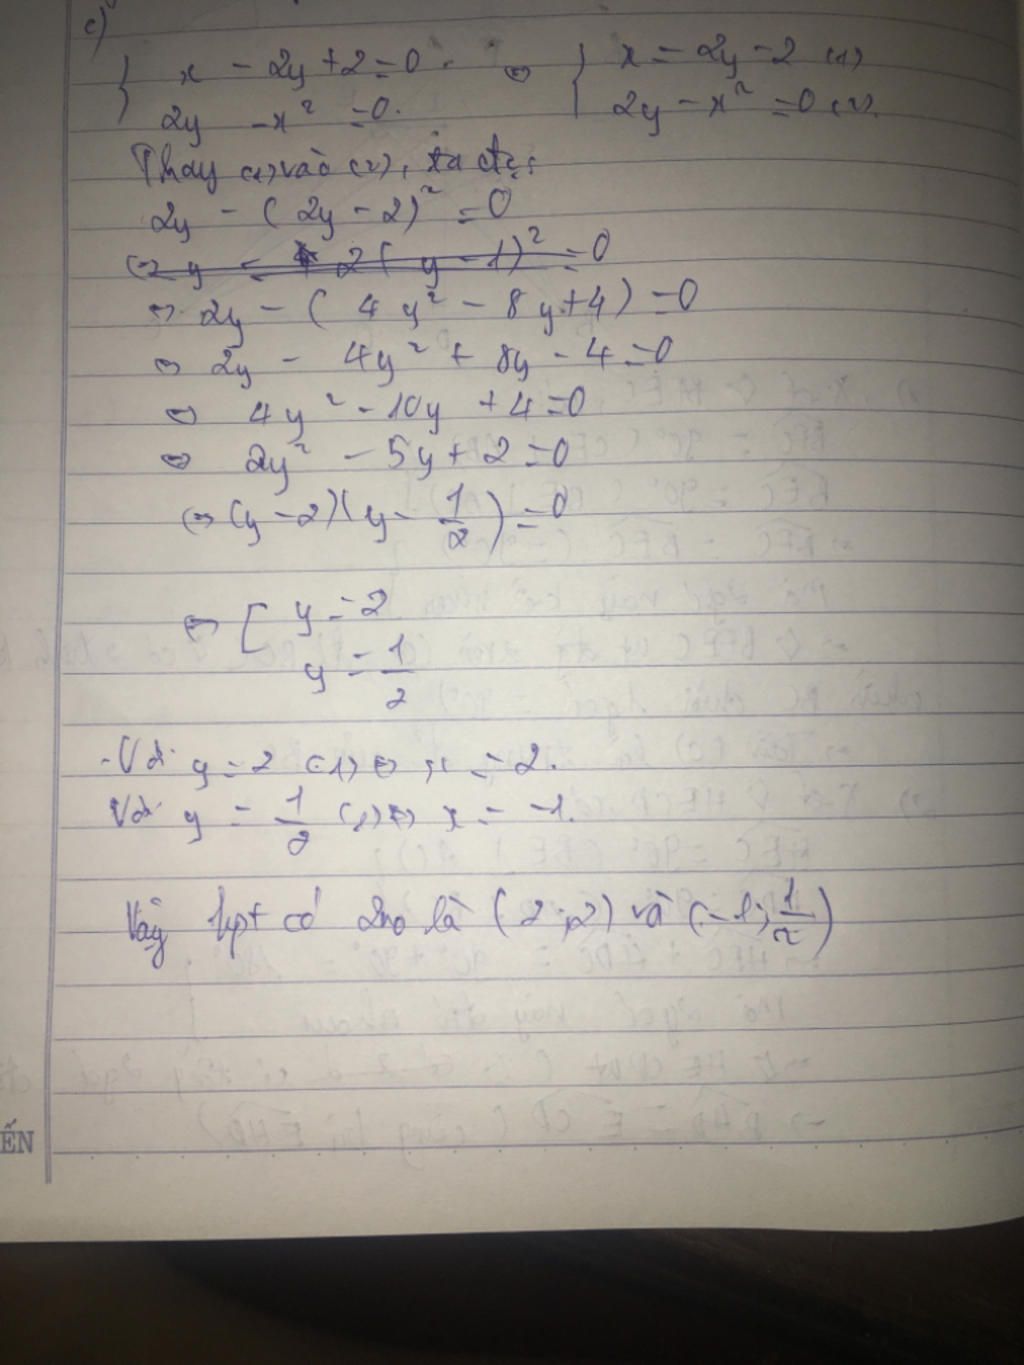 c)
{ x - 2y + 2 = 0 ⇔ { x = 2y - 2 (1)
2y - x² = 0. 2y - x² = 0 (2).
Thay (1) vào (2), ta đc:
2y - (2y - 2)² = 0
⇔ 2y - (4y² - 8y + 4) = 0
⇔ 2y - 4y² + 8y - 4 = 0
⇔ 4y² - 10y + 4 = 0
⇔ 2y² - 5y + 2 = 0
⇔ (y - 2)(y - 1/2) = 0
⇔ [ y = 2
y = 1/2
- Với y = 2 (1) ⇔ x = 2.
Với y = 1/2 (1) ⇔ x = -1.
Vậy hpt có 2no là (2; 2) và (-1; 1/2)
ẾN